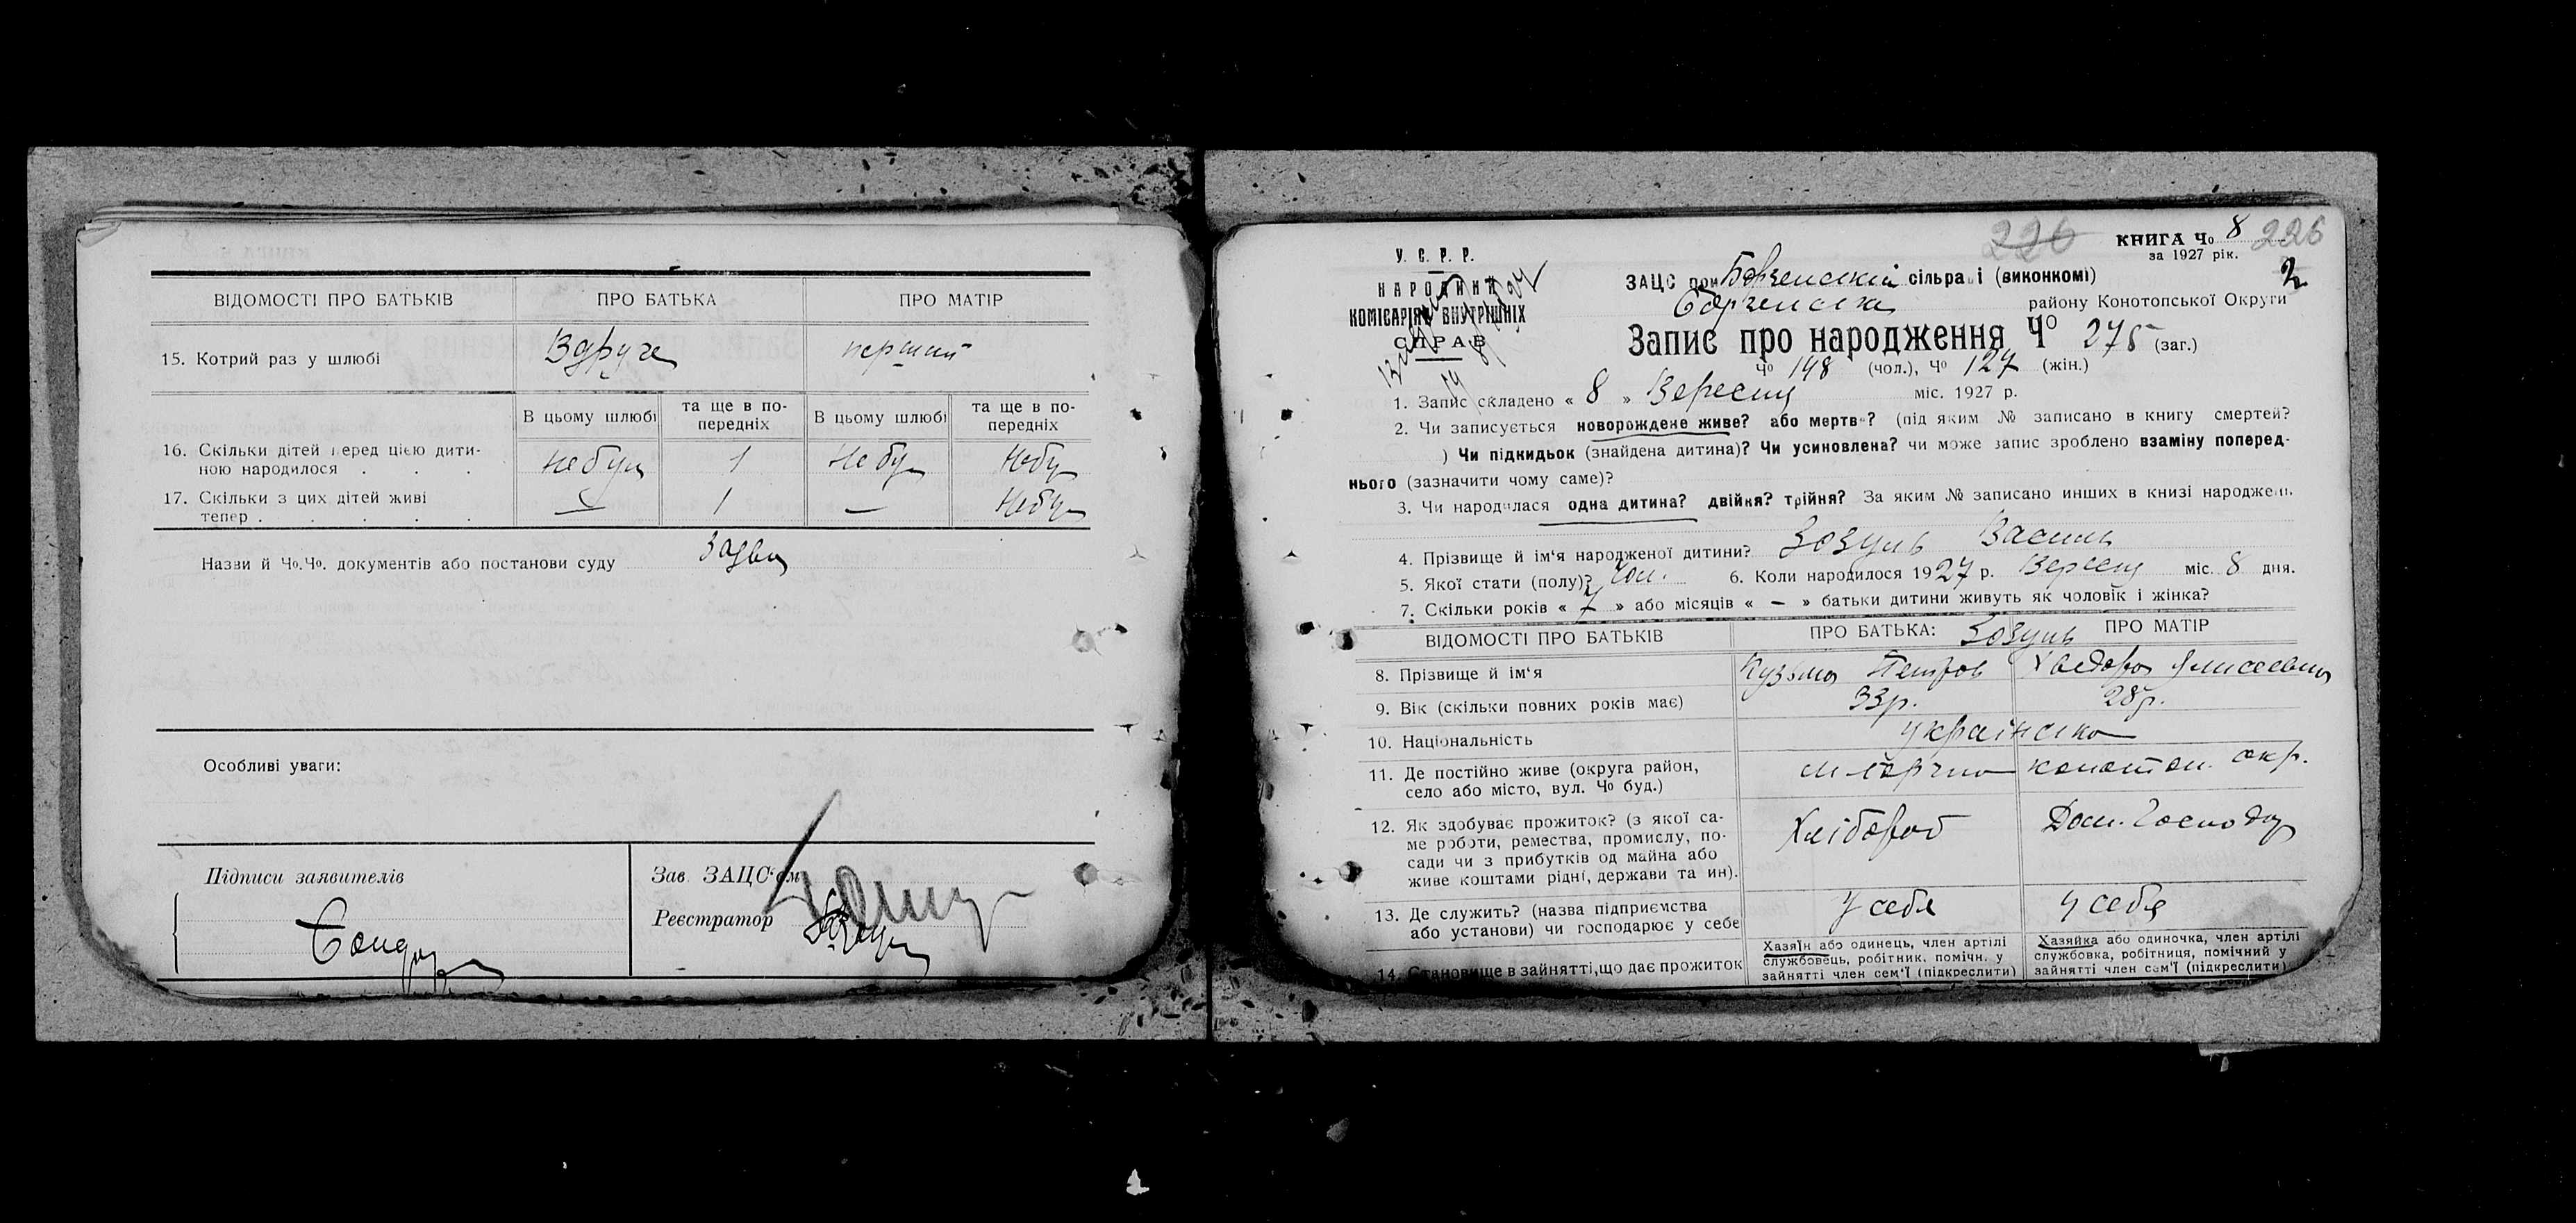 ВІДОМОСТІ ПРО БАТЬКІВ ПРО БАТЬКА ПРО МАТІР
15. Котрий раз у шлюбі Вдруге перший
В цьому шлюбі та ще в по- В цьому шлюбі та ще в по-
передніх передніх
16. Скільки дітей перед цією дити-
ною народилося . . . 1
17. Скільки з цих дітей живі
тепер . . . . . — 1 —
Назви й Чо.Чо. документів або постанови суду
Особливі уваги:
Підписи заявителів
Зав. ЗАЦС'ом
Реєстратор
226 КНИГА Чо 8 226
за 1927 рік.
2
У. С. Р. Р.
НАРОДНИЙ
КОМІСАРІЯТ ВНУТРІШНІХ
СПРАВ
ЗАЦС при Борзенській сільраді (виконкомі)
Борзенська району Конотопської Округи
Запис про народження Чо 275 (заг.)
Чо 148 (чол.), Чо 127 (жін.)
1. Запис складено « 8 » Вересня міс. 1927 р.
2. Чи записується новорождене живе? або мертве? (під яким № записано в книгу смертей?
) Чи підкидьок (знайдена дитина)? Чи усиновлена? чи може запис зроблено взаміну поперед-
нього (зазначити чому саме)?
3. Чи народилася одна дитина? двійня? трійня? За яким № записано инших в книзі народжень
4. Прізвище й ім'я народженої дитини? Зозуль Василь
5. Якої стати (полу)? Чол. 6. Коли народилося 1927 р. Вересня міс. 8 дня.
7. Скільки років « 7 » або місяців « — » батьки дитини живуть як чоловік і жінка?
ВІДОМОСТІ ПРО БАТЬКІВ ПРО БАТЬКА: Зозуль ПРО МАТІР
8. Прізвище й ім'я Кузьма Петров
9. Вік (скільки повних років має) 33р. 28р.
10. Національність українська
11. Де постійно живе (округа район, м Борзна конотоп. окр.
село або місто, вул. Чо буд.)
12. Як здобуває прожиток? (з якої са- Хлібороб Дом. Господар
ме роботи, ремества, промислу, по-
сади чи з прибутків од майна або
живе коштами рідні, держави та ин).
13. Де служить? (назва підприємства У себе У себе
або установи) чи господарює у себе
14. Становище в зайнятті, що дає прожиток
Хазяїн або одинець, член артілі
службовець, робітник. помічн. у
зайнятті член сем'ї (підкреслити)
Хазяйка або одиночка, член артілі
службовка, робітниця, помічний у
зайнятті член сем'ї (підкреслити)